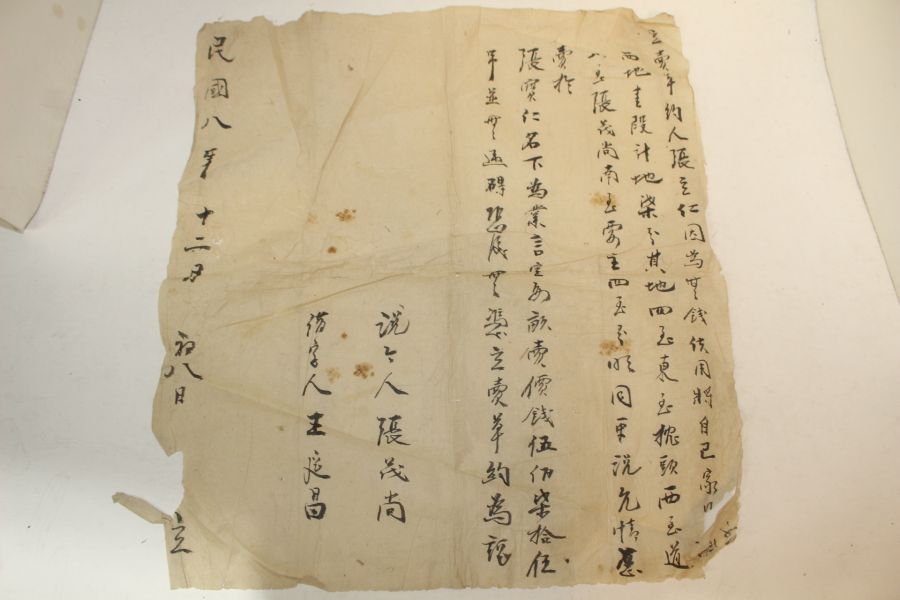 立賣草約人張立仁因為無錢使用將自己家
西地壹段計地柒分其地四至東至枕頭西至道
至張茂尚南至賣主四至分明同中說允情愿
賣於
張寶仁名下為業言定每畝賣價錢伍佰柒拾伍
吊並無違碍恐後無憑立賣草約為証
說合人張茂尚
借字人王廷昌
民國八年十二月初八日立